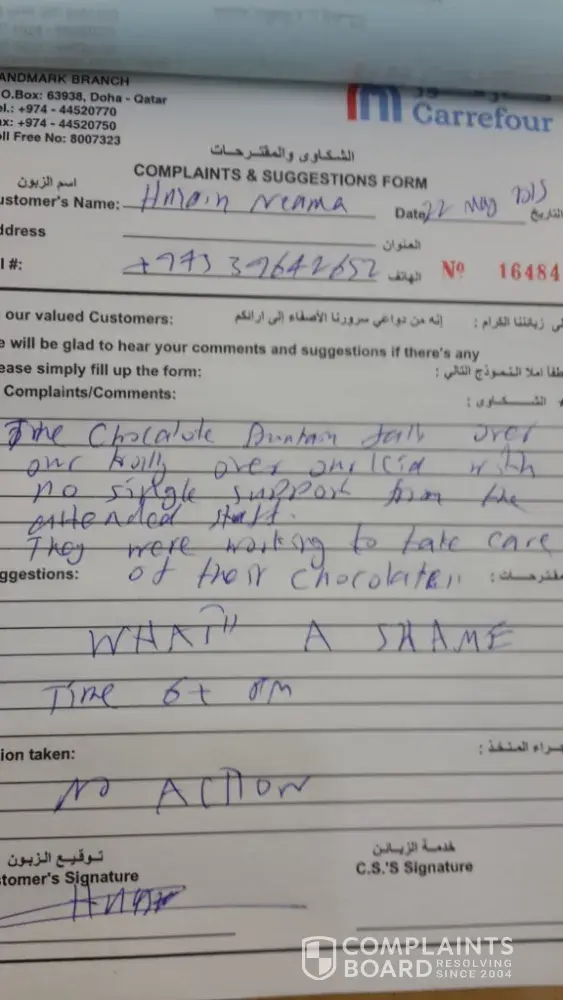 ANDMARK BRANCH
O.Box: 63938, Doha - Qatar
el.: +974 - 44520770
ax: +974 - 44520750
oll Free No: 8007323
Carrefour
الشكاوى والمقترحات
COMPLAINTS & SUGGESTIONS FORM
اسم الزبون
ustomer's Name: Hnsain Neama Date 22 May 2015 التاريخ
ddress العنوان
l #: +974 39642652 الهاتف Nº 16484
our valued Customers: إنه من دواعي سرورنا الأصغاء إلى ارائكم لى زبائننا الكرام :
e will be glad to hear your comments and suggestions if there's any
ease simply fill up the form: طفا املا النموذج التالي :
Complaints/Comments: الشكاوى :
The Chocalate Duntain fall over
our trolly over our kid with
no single support from the
attended staff.
They were working to take care
ggestions: of their chocolate,, مقترحات :
WHAT,, A SHAME
Time 6+ pm
ion taken: جراء المتخذ :
NO ACTION
توقيع الزبون
stomer's Signature
خدمة الزبائن
C.S.'S Signature
COMPLAINTS
BOARD RESOLVING SINCE 2004